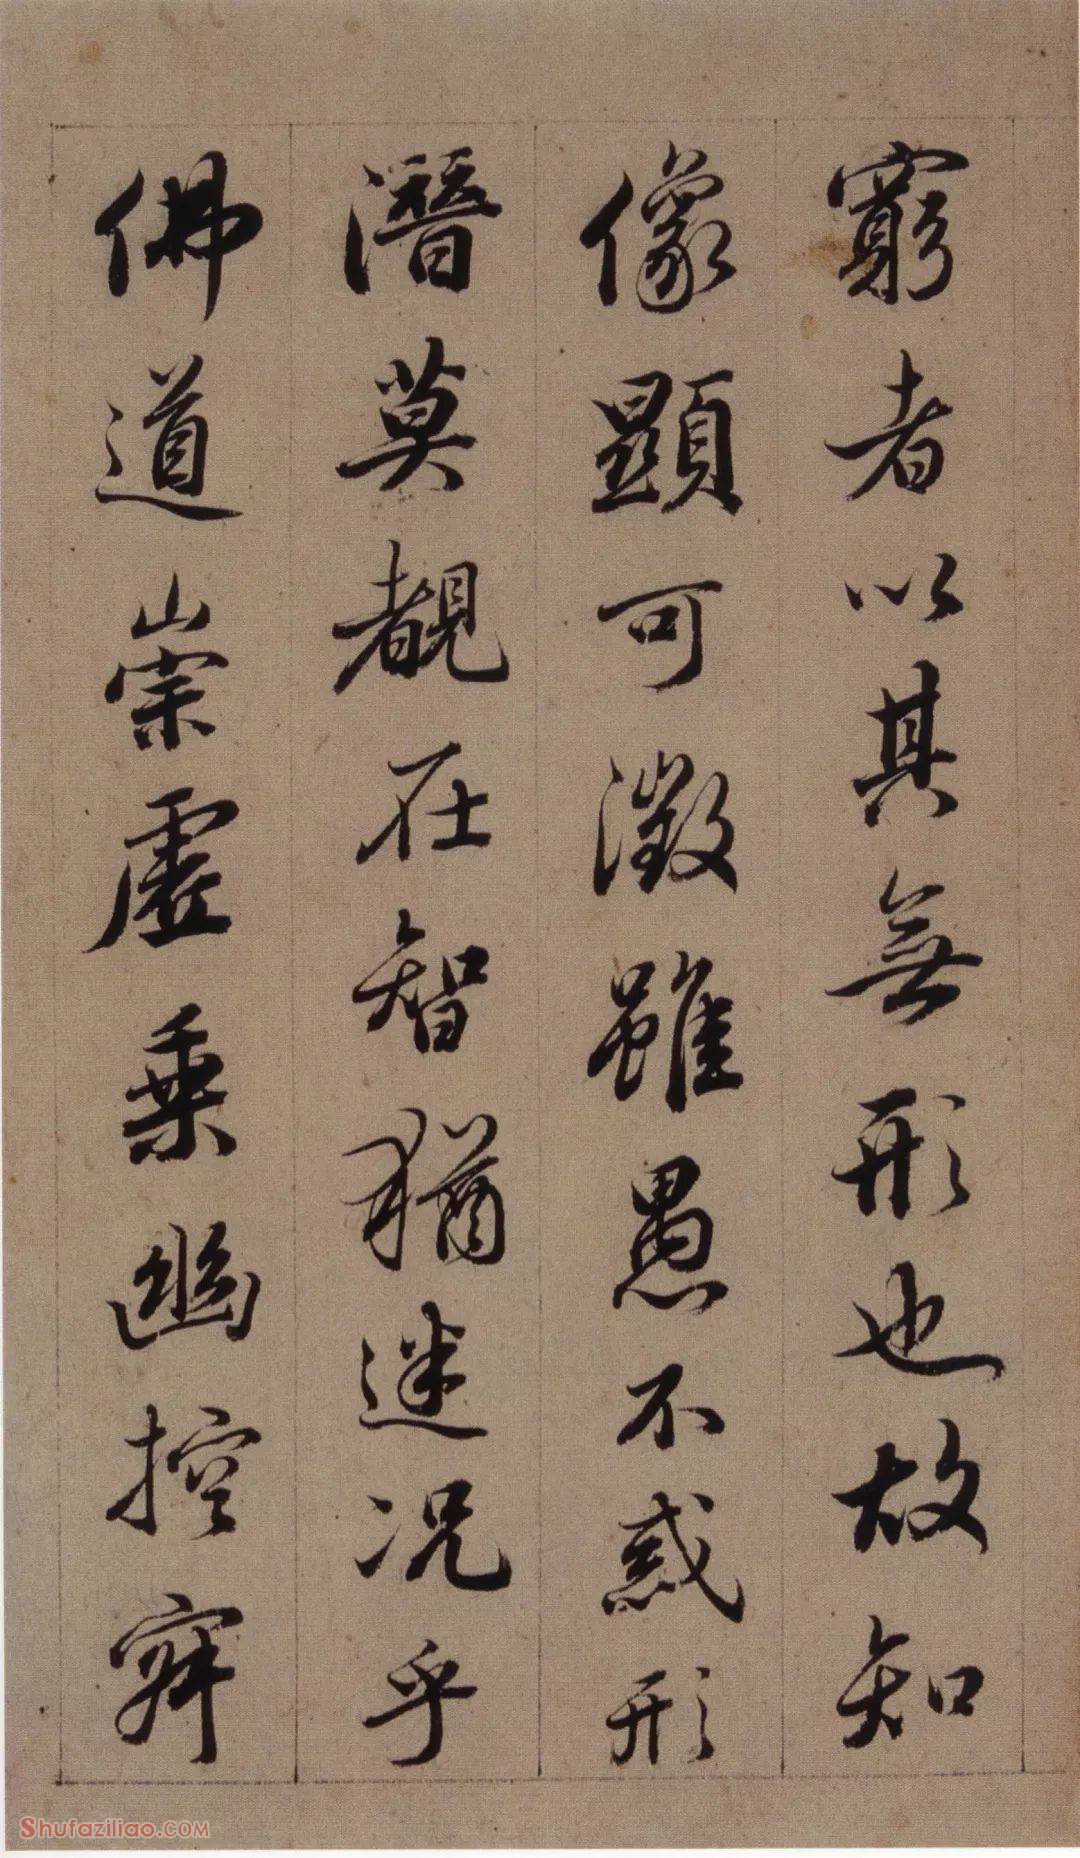 窮者以其無形也故知
像顯可徵雖愚不惑形
潛莫覩在智猶迷况乎
佛道崇虛乗幽控寂
Shufaziliao.COM